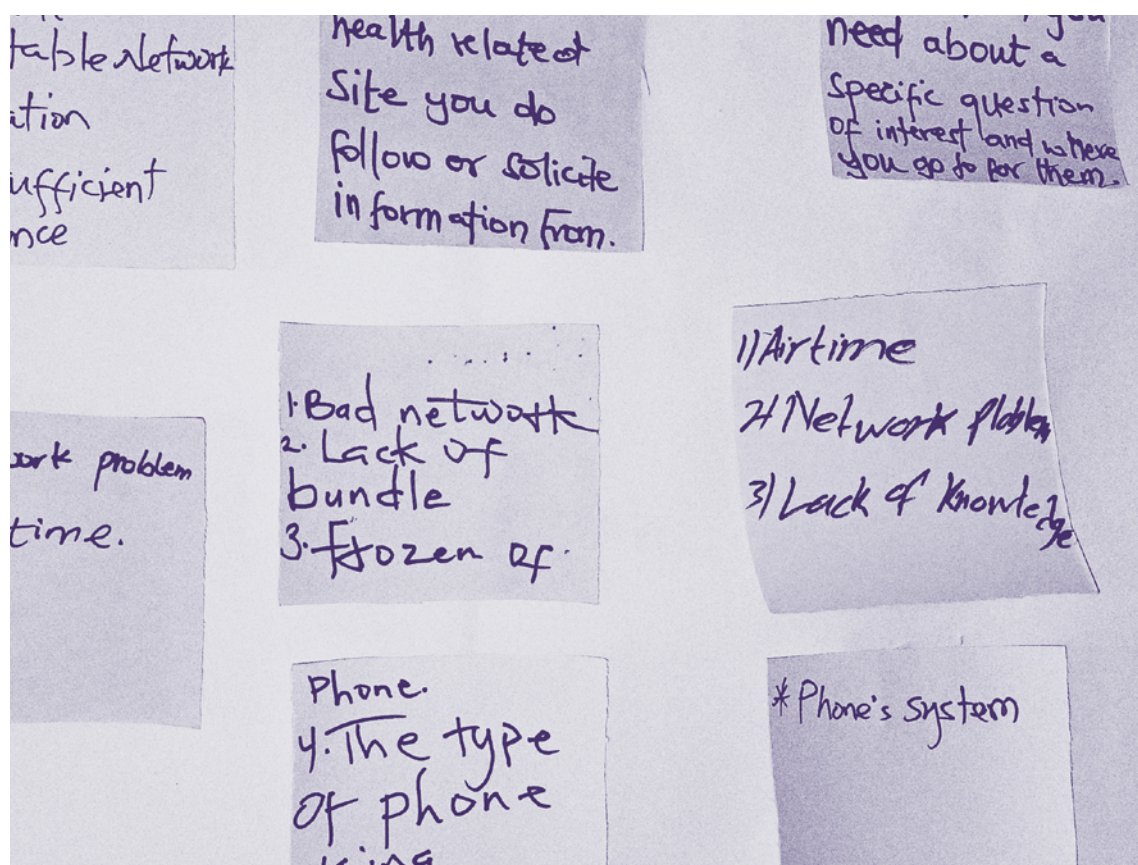 table Network
ation
ufficient
nce
health related
site you do
follow or solicite
information from.
you
need about a
specific question
of interest and where
you go to for them.
ork problem
time.
1. Bad network
2. Lack of
bundle
3. Frozen of
1) Airtime
2) Network Ploblem
3) Lack of Knowledge
Phone.
4. The type
of phone
using
* Phone's system